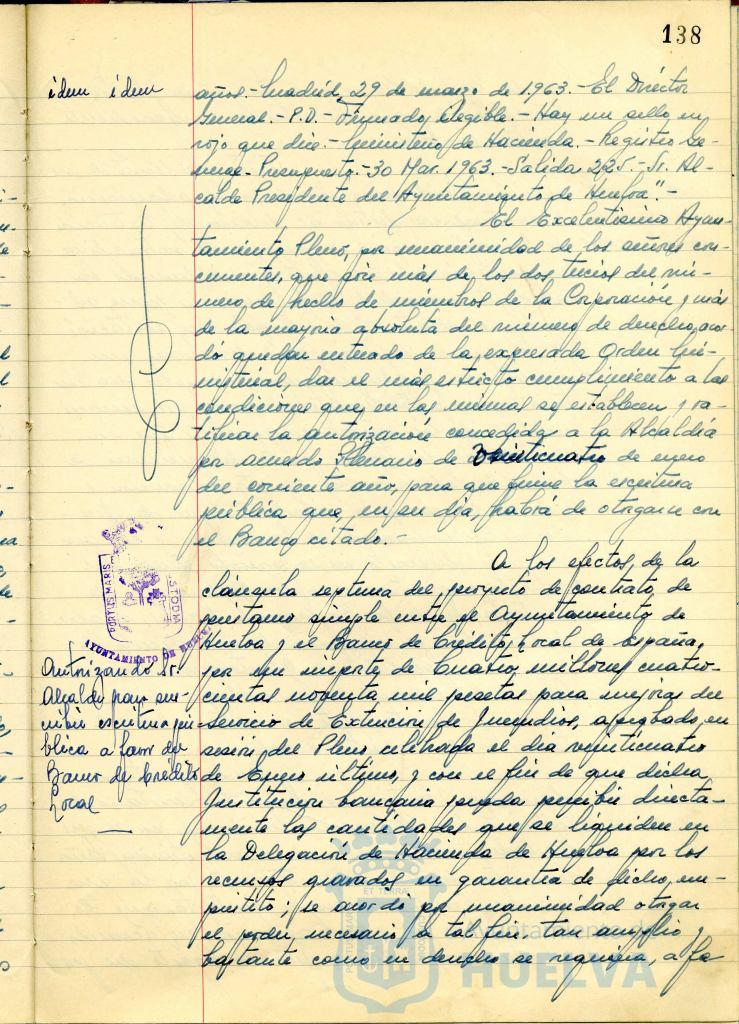 138
idem idem
años.- Madrid, 29 de marzo de 1.963.- El Director
General.- P.D.- Firmado, ilegible.- Hay un sello en
rojo que dice.- Ministerio de Hacienda.- Registro Ge-
neral- Presupuesto.- 30 Mar. 1963.- Salida 225.- Sr. Al-
calde Presidente del Ayuntamiento de Huelva".-
El Excelentísimo Ayun-
tamiento Pleno, por unanimidad de los señores con-
currentes, que son más de los dos tercios del nú-
mero de hecho de miembros de la Corporación y más
de la mayoria absoluta del número de derecho, acor-
dó quedar enterado de la expresada Orden Mi-
nisterial, dar el más estricto cumplimiento a las
condiciones que en las mismas se establecen y ra-
tificar la autorización concedida a la Alcaldía
por acuerdo Plenario de veinticuatro de enero
del corriente año, para que firme la escritura
pública que, en su día, habrá de otorgarse con
el Banco citado.-
A los efectos de la
cláusula septima del proyecto de contrato de
préstamo simple entre el Ayuntamiento de
Huelva y el Banco de Crédito Local de España,
por un importe de Cuatro millones cuatro-
cientas noventa mil pesetas para mejoras del
Servicio de Extinción de Incendios, aprobado en
sesión del Pleno celebrada el día veinticuatro
de Enero último, y con el fin de que dicha
Institución bancaria pueda percibir directa-
mente las cantidades que se liquiden en
la Delegación de Hacienda de Huelva por los
recursos gravados en garantía de dicho em-
préstito; se acordó por unanimidad otorgar
el poder necesario a tal fin, tan amplio y
bastante como en derecho se requiera, a fa
PORTUS MARIS
CUSTODIA
AYUNTAMIENTO DE HUELVA
Autorizando Sr.
Alcalde para sus-
cribir escritura pú-
blica a favor del
Banco de Crédito
Local
Ayuntamiento de
HUELVA